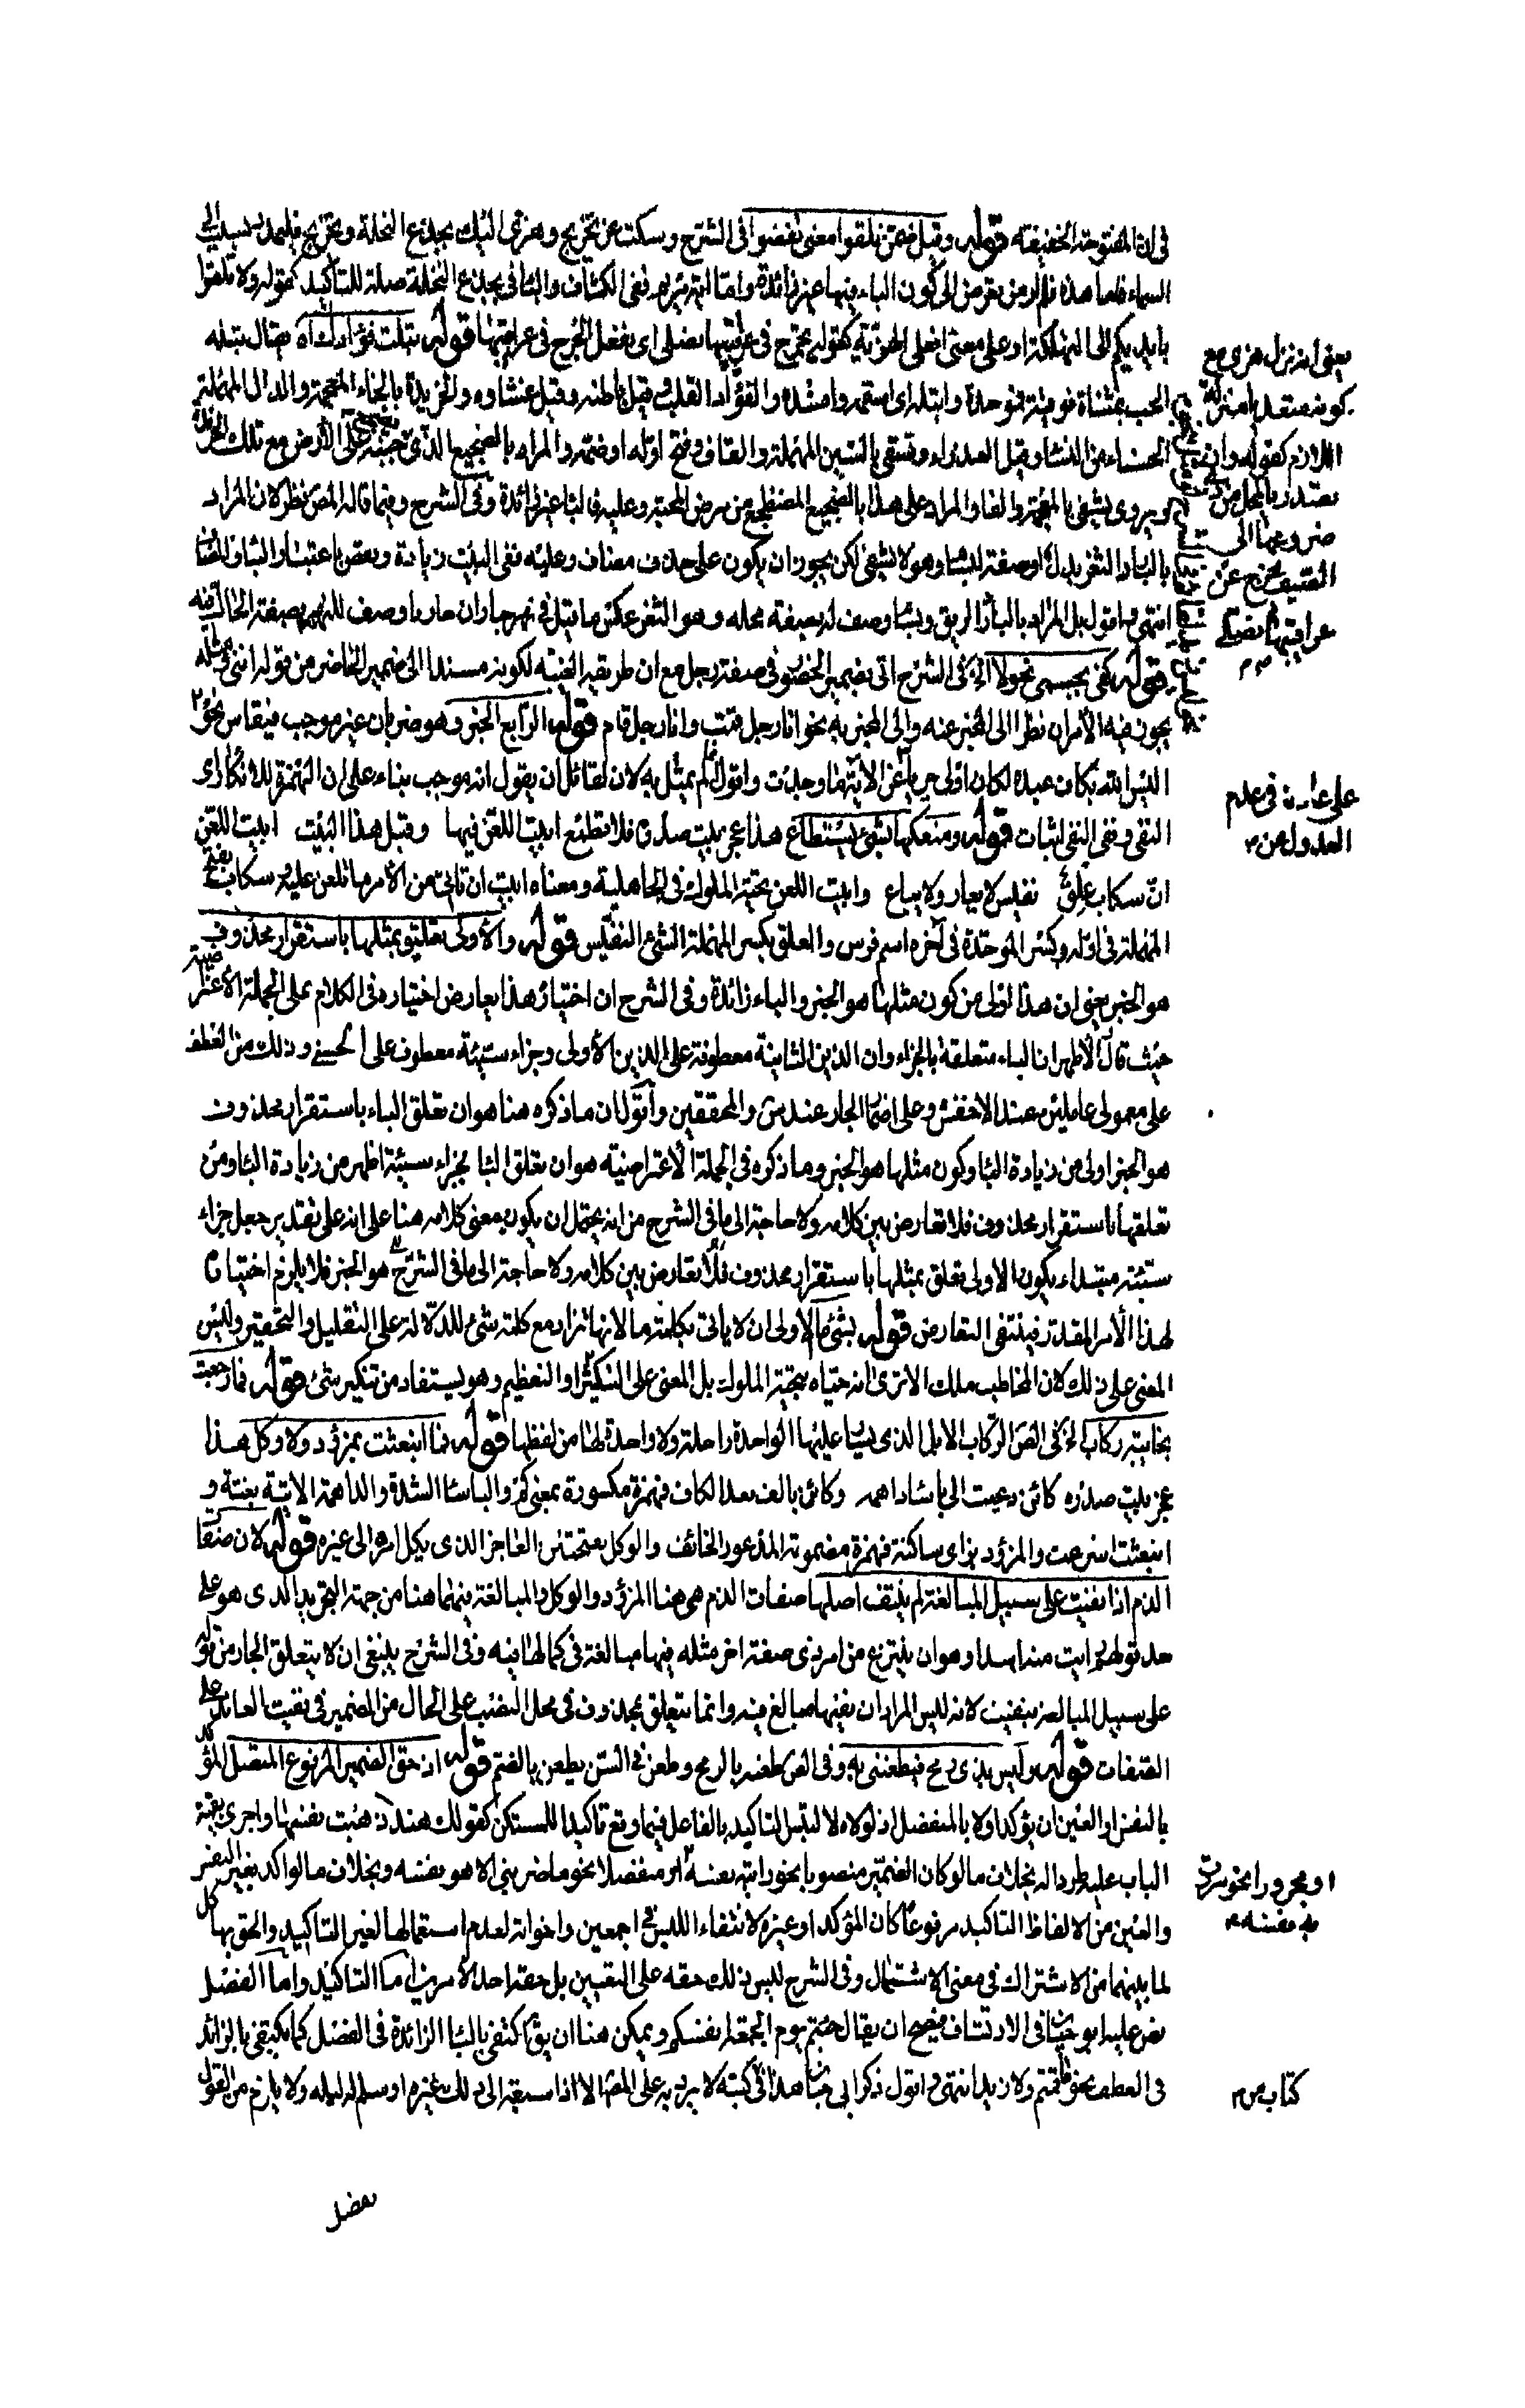 في ان المفتوحة الخفيفة قوله وقيل ضمن تلقوا معنى تفضوا في الشرح وسكت عن تخريج وهزي اليك بجذع النخلة وتخريج فليمدد بسبب الى
السماء فاما هذه فلم ار من تعرض الى كون الباء فيها غير زائدة واما آية مريم ففي الكشاف والباء في بجذع النخلة صلة للتأكيد كقوله ولا تلقوا
بايديكم الى التهلكة او على معنى افعلي الهز به كقوله يجرح في عراقيبها نصلي اي يفعل الجرح في عراقيبها قوله تبلت فؤادك اه يقال تبله
الحب بمثناة فوقية فموحدة وابتله اي اسقمه وافسده والفؤاد القلب وقيل باطنه وقيل غشاوه والخريدة بالخاء المعجمة والدال المهملة
الحسناء من النساء وقيل العذراء وتسقي بالسين المهملة والقاف وفتح اوله او ضمه والمراد بالضجيع الذي تجيئه على الارض مع تلك
ويروى يشفي بالمعجمة والفاء والمراد على هذا بالضجيع المضطجع من مرض المحبة وعليه فالباء غير زائدة وفي الشرح وفيما قاله المص نظر لان المراد
بالبارد الثغر بدليل وصفه لبسام وهو لا يسقي لكن يجوز ان يكون على حذف مضاف وعليه ففي البيت زيادة ونقص باعتبار الباء والمضاف
انتهى واقول بل المراد بالبارد الريق وبسام وصف له بصفة محله وهو الثغر عكس ما قيل في نهر جار ان جاريا وصف للنهر بصفة الحال فيه
قوله كفى بجسمي نحولا الخ في الشرح اتى بضمير الحضور في صفة رجل مع ان طريقه الغيبة لكونه مسندا الى ضمير الحاضر من قوله انني ومثله
يجوز فيه الامران نظرا الى المخبر عنه والى المخبر به نحو انا رجل قمت وانا رجل قام قوله الرابع الخبر وهو ضربان غير موجب فينقاس نحو
اليس الله بكاف عبده لكان اولى واقول لم يمثل به لان لقائل ان يقول انه موجب بناء على ان الهمزة للانكار اي
النفي ونفي النفي اثبات قوله ومنعكها بشيء يستطاع هذا عجز بيت صدره فلا تطمع ابيت اللعن فيها وقبل هذا البيت ابيت اللعن
ان سكاب علق نفيس لا يعار ولا يباع وابيت اللعن تحية الملوك في الجاهلية ومعناه ابيت ان تاتي من الامر ما تلعن عليه وسكاب بفتح
المهملة في اوله وكسر الموحدة في آخره اسم فرس والعلق بكسر المهملة الشيء النفيس قوله والاولى تعليق بمثلها باستقرار محذوف
هو الخبر يعني ان هذا اولى من كون مثلها هو الخبر والباء زائدة وفي الشرح ان اختياره هذا يعارض اختياره في الكلام على الجملة الاعتراضية
حيث قال الاظهر ان الباء متعلقة بالجزاء وان الذين الثانية معطوفة على الذين الاولى وجزاء سيئة معطوف على الحسنى وذلك من العطف
على معمولي عاملين عند الاخفش وعلى اضمار الجار عند س والمحققين واقول ان ما ذكره هنا هو ان تعلق الباء باستقرار محذوف
هو الخبر اولى من زيادة الباء وكون مثلها هو الخبر وما ذكره في الجملة الاعتراضية هو ان تعلق الباء بجزاء سيئة اظهر من زيادة الباء ومن
تعلقها باستقرار محذوف فلا تعارض بين كلاميه ولا حاجة الى ما في الشرح من انه يحتمل ان يكون معنى كلامه هنا على انه على تقدير جعل جزاء
سيئة مبتداء يكون الاولى تعلق بمثلها باستقرار محذوف فلا تعارض بين كلاميه ولا حاجة الى ما في الشرح هو الخبر فلا يلزم اختياره
لهذا الامر المقدر فينتفي التعارض قوله بشيء ما الاولى ان لا ياتي بكلمة ما لانها تزاد مع كلمة شيء للدلالة على التقليل والتحقير وليس
المعنى على ذلك لان المخاطب ملك الا ترى انه حياه بتحية الملوك بل المعنى على التكثير او التعظيم وهو يستفاد من تنكير شيء قوله فما رجعت
بخايبة ركاب الخ في القن الركاب الابل الذي يسار عليها الواحدة راحلة ولا واحدة لها من لفظها قوله فما انبعثت بمزؤد ولا وكل هذا
عجز بيت صدره كائن دعيت الى باساء داهمة وكائن بالف بعد الكاف فهمزة مكسورة بمعنى كم والباساء الشدة والداهمة الاتية بغتة و
انبعثت اسرعت والمزؤد بزاي ساكنة فهمزة مضمومة المذعور الخائف والوكل بفتحتين العاجز الذي يكل امره الى غيره قوله لان صفات
الذم اذا نفيت على سبيل المبالغة لم ينتف اصلها صفات الذم هي هنا المزؤد والوكل والمبالغة فيهما هنا من جهة التجريد الذي هو على
حد قولهم رايت منه اسدا وهو ان ينتزع من امر ذي صفة اخر مثله فيها مبالغة في كمالها فيه وفي الشرح ينبغي ان لا يتعلق الجار من قوله
على سبيل المبالغة بنفيت لانه ليس المراد ان نفيها مبالغ فيه وانما يتعلق بمحذوف في محل النصب على الحال من الضمير في نفيت العائد على
الصفات قوله وليس بذي رمح فيطعنني به وفي القن طعنه بالرمح وطعن في السن يطعن بالضم قوله اذ حق الضمير المرفوع المتصل المؤكد
بالنفس او العين ان يؤكد اولا بالمنفصل اذ لولاه لالتبس التاكيد بالفاعل فيما وقع تاكيدا للمستكن كقولك هند ذهبت نفسها واجرى بقية
الباب عليه طردا له بخلاف ما لو كان الضمير منصوبا نحو رايته نفسه او منفصلا نحو ما ضربني الا هو نفسه وبخلاف ما لو اكد بغير النفس
والعين من الالفاظ التاكيد مرفوعا كان المؤكد او غيره لانتفاء اللبس في اجمعين واخواته لعدم استعمالها لغير التاكيد والحق بها كل
لما بينهما من الاشتراك في معنى الاشتمال وفي الشرح ليس ذلك حقه على التعيين بل حقه احد الامرين اما التاكيد واما الفصل
نص عليه ابو حيان في الارتشاف فيصح ان يقال جئتم يوم الجمعة انفسكم ويمكن هنا ان يق اكتفي بالباء الزائدة في الفصل كما يكتفى بالزائد
في العطف نحو ما قمتم ولا زيد انتهى واقول ذكر ابي حيان هذا في كتبه لا يرد به على المص الا اذا سبقه الى ذلك غيره او سلم له دليله ولا يلزم من القول
يعني انه نزل هزي مع
كونه متعديا منزلة
اللازم كقوله وان
تعتذر بالمحل من ذي
ضروعها الى
الضيف يجرح في
عراقيبها نصلي
على عادته في عدم
العدول من
او مجرورا نحو مررت
به نفسه
كتاب
بعض